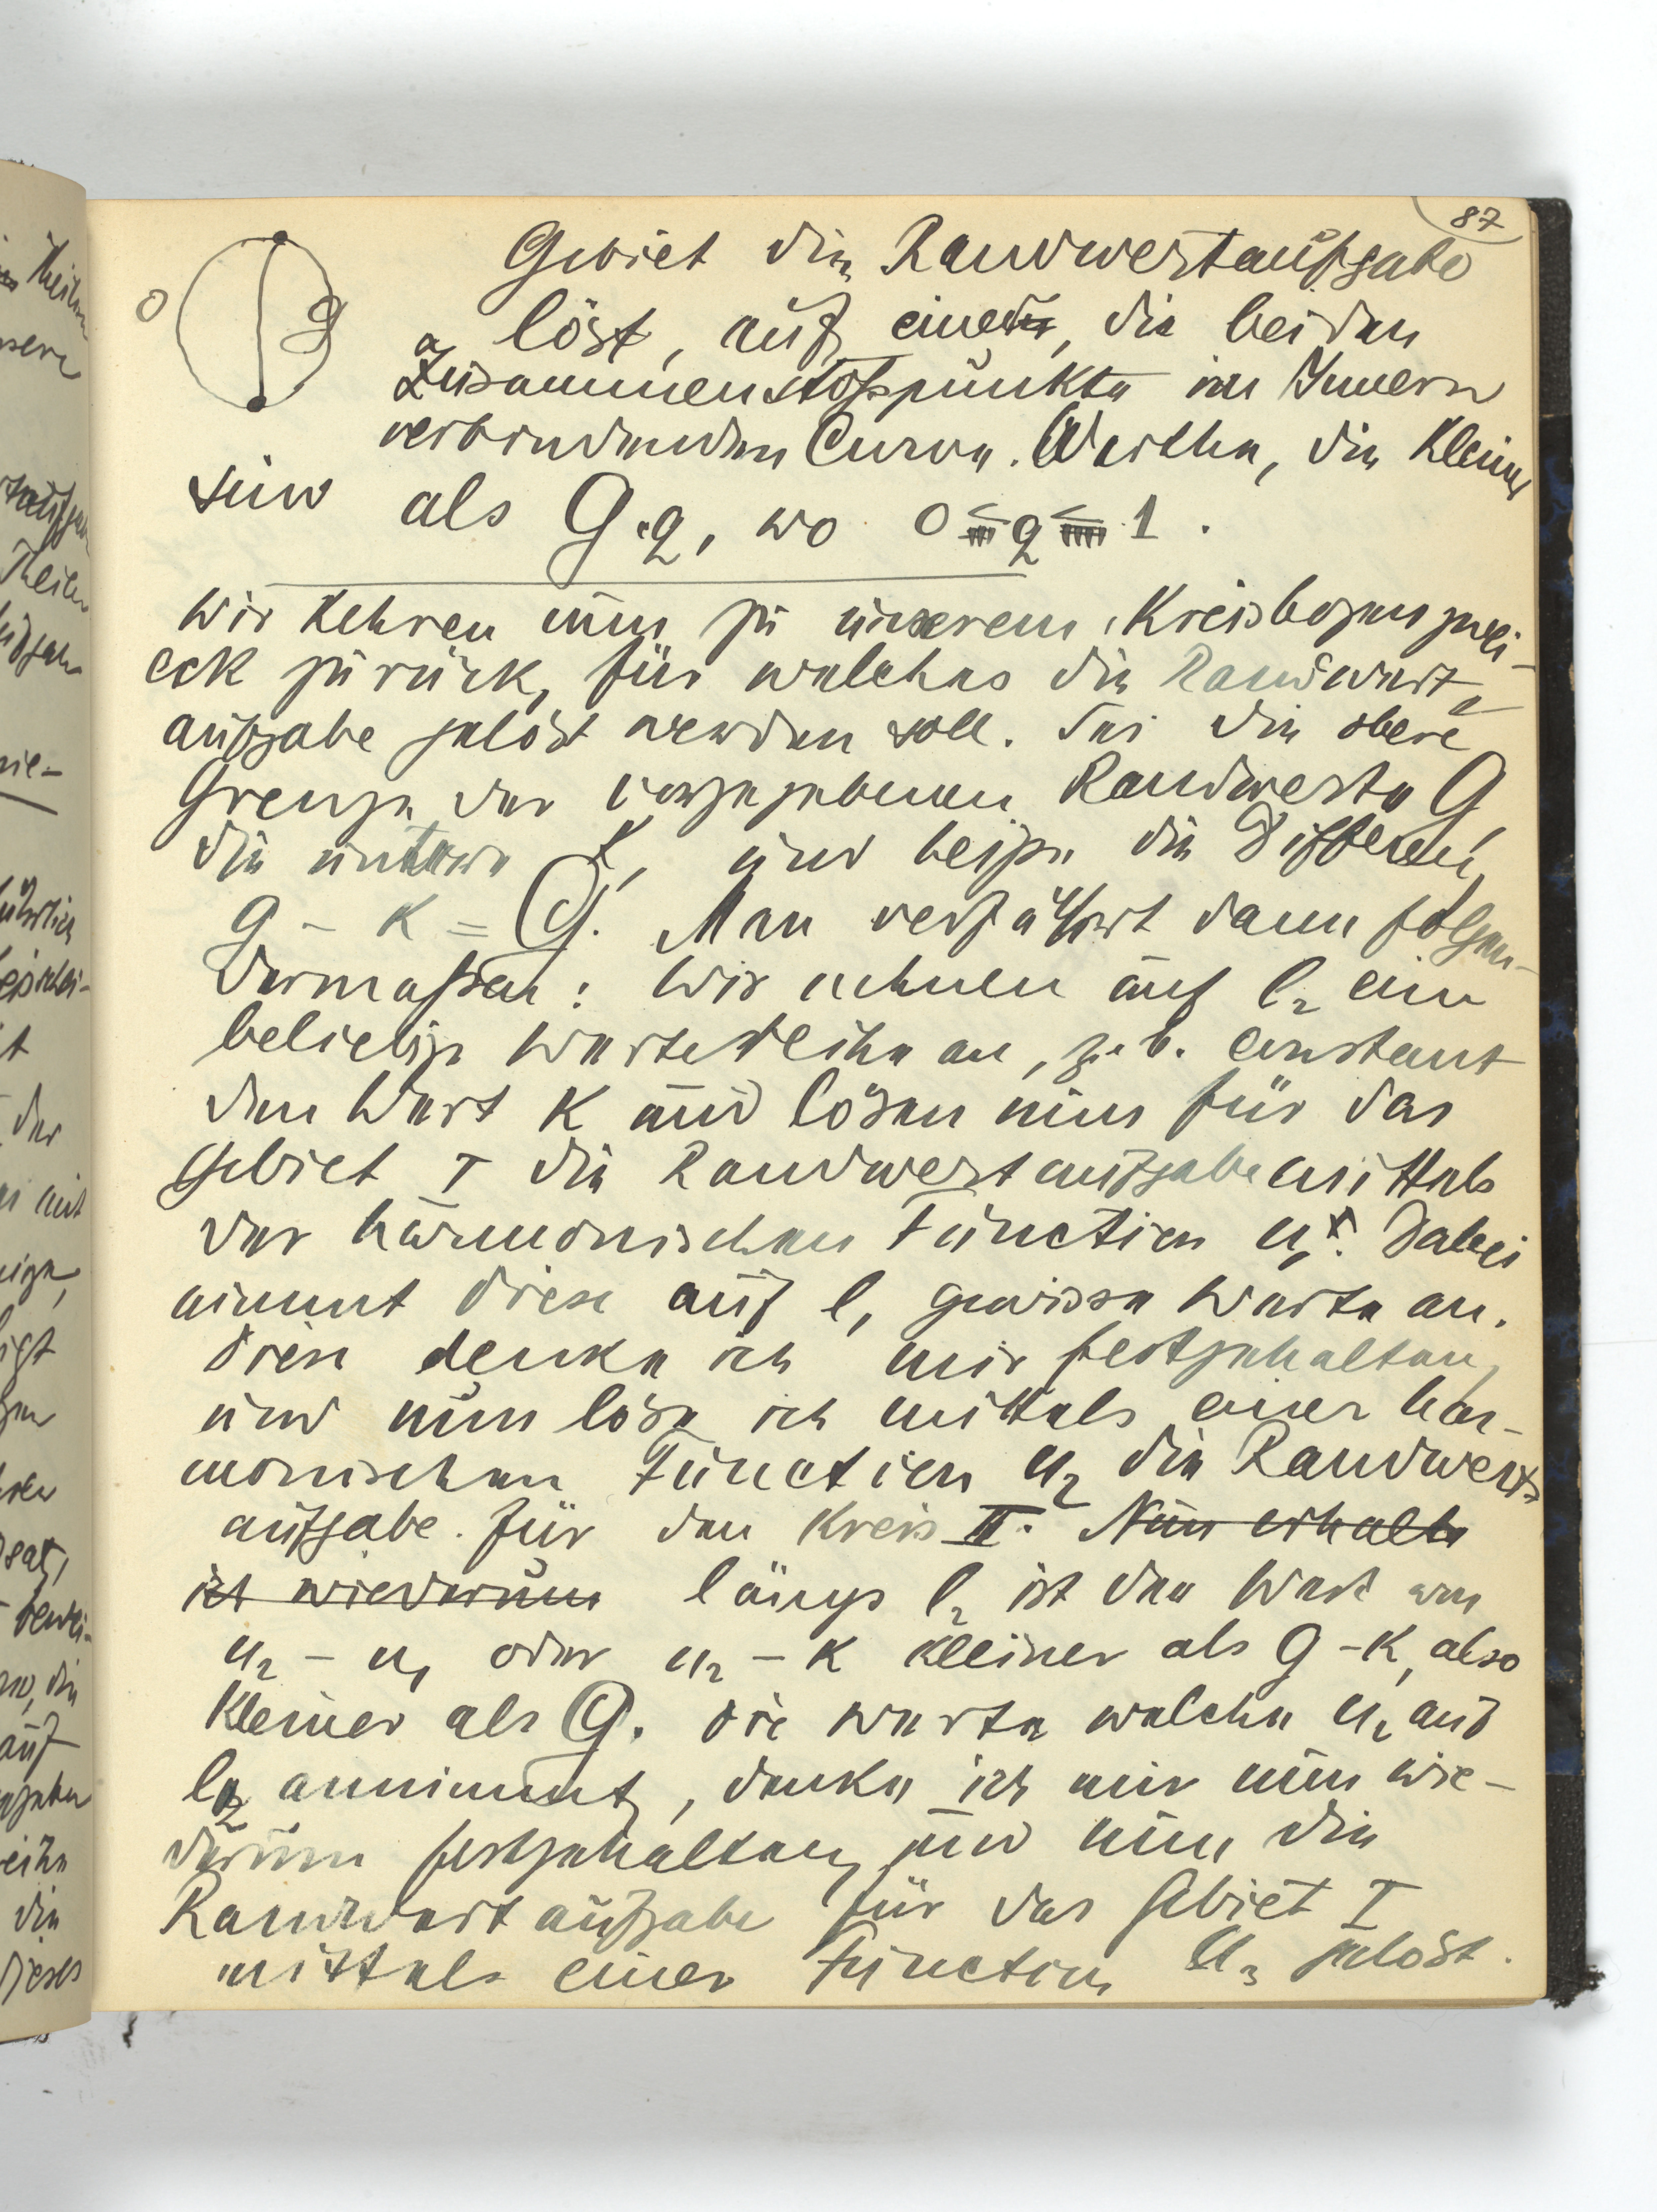 87
Gebiet die Randwertaufgabe
0 g
löst, auf einer, die beiden
Zusammenstoßpunkte im Innern
verbindenden Curve. Werthe, die kleiner
sind als G·q, wo 0 < q < 1.
Wir kehren nun zu unserem Kreisbogenzwei-
eck zurück, für welches die Randwert-
aufgabe gelöst werden soll. Sei die obere
Grenze der vorgegebenen Randwerte g,
die untere k, und heiße die Differenz
g - k = G. Man verfährt dann folgen-
dermaßen: Wir nehmen auf l₂ eine
beliebige Wertereihe an, z. b. constant
den Wert k und lösen nun für das
Gebiet I die Randwertaufgabe mittels
der harmonischen Function u₁. Dabei
nimmt diese auf l₁ gewisse Werte an.
Diese denke ich mir festgehalten,
und nun löse ich mittels einer har-
monischen Function u₂ die Randwert-
aufgabe für den Kreis II. Nun erhalte
ich wiederum längs l₂ ist der Wert von
u₂ - u₁ oder u₂ - k kleiner als g - k, also
kleiner als G. Die Werte welche u₂ auf
l₂ annimmt, denke ich mir nun wie-
derum festgehalten und nun die
Randwertaufgabe für das Gebiet I
mittels einer Function u₃ gelöst.